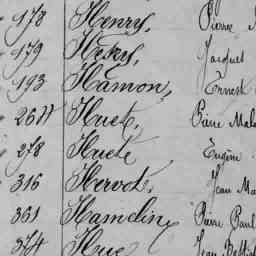 178 Henry, Pierre
179 Henry, Jacques
193 Hamon, Ernest
261 Huet, Pierre
278 Huet Eugène
316 Hervot, Jean
361 Hamelin, Pierre Paul
374 Hue Jean